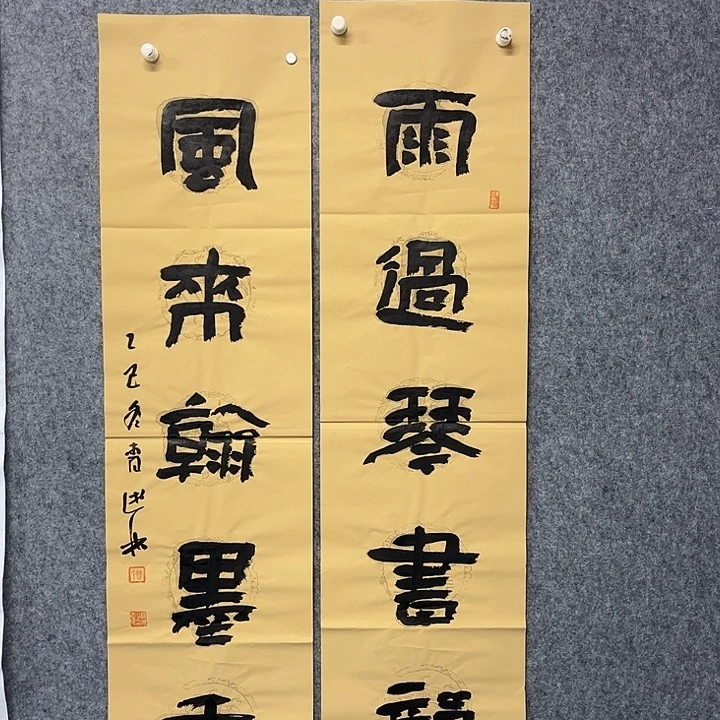 雨過琴書韻
風來翰墨
乙巳冬青